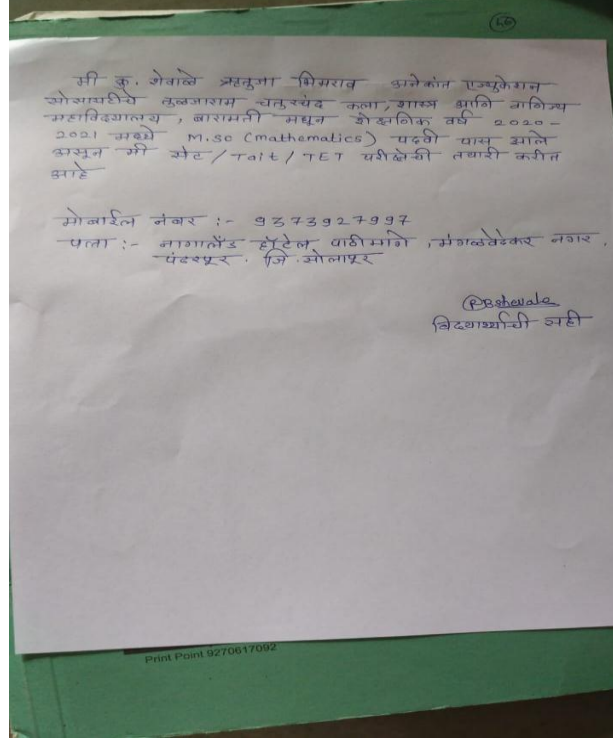 46
मी कु. शेवाळे ऋतुजा भिमराव अनेकांत एज्युकेशन
सोसायटीचे तुळजाराम चतुरचंद कला, शास्त्र आणि वाणिज्य
महाविद्यालय, बारामती मधून शैक्षणिक वर्ष 2020-
2021 मध्ये M.sc (mathematics) पदवी पास झाले
असून मी सेट / Tait / TET परीक्षेची तयारी करीत
आहे
मोबाईल नंबर :- 9373927997
पत्ता :- नागालँड हॉटेल पाठीमागे, मंगळवेढेकर नगर,
पंढरपूर. जि. सोलापूर
RBshevale
विद्यार्थ्याची सही
Print Point 9270617092